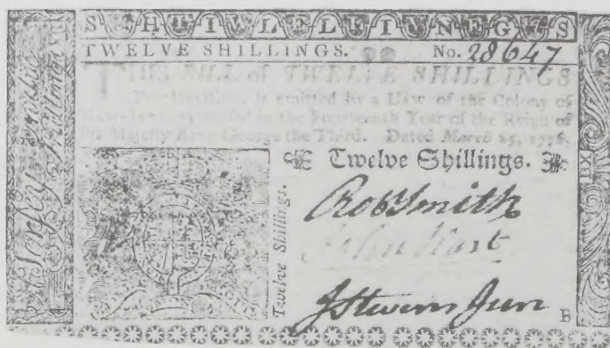 SHTIWLELLIVNEGS
TWELVE SHILLINGS. No. 28647
THIS BILL of TWELVE SHILLINGS
Proclamation, is emitted by a Law of the Colony of
passed in the Fourteenth Year of the Reign of
his Majesty King George the Third. Dated March 25, 1776.
Twelve Shillings.
Twelve Shillings.
RobSmith
John Hart
JStevens Junr
B
XII